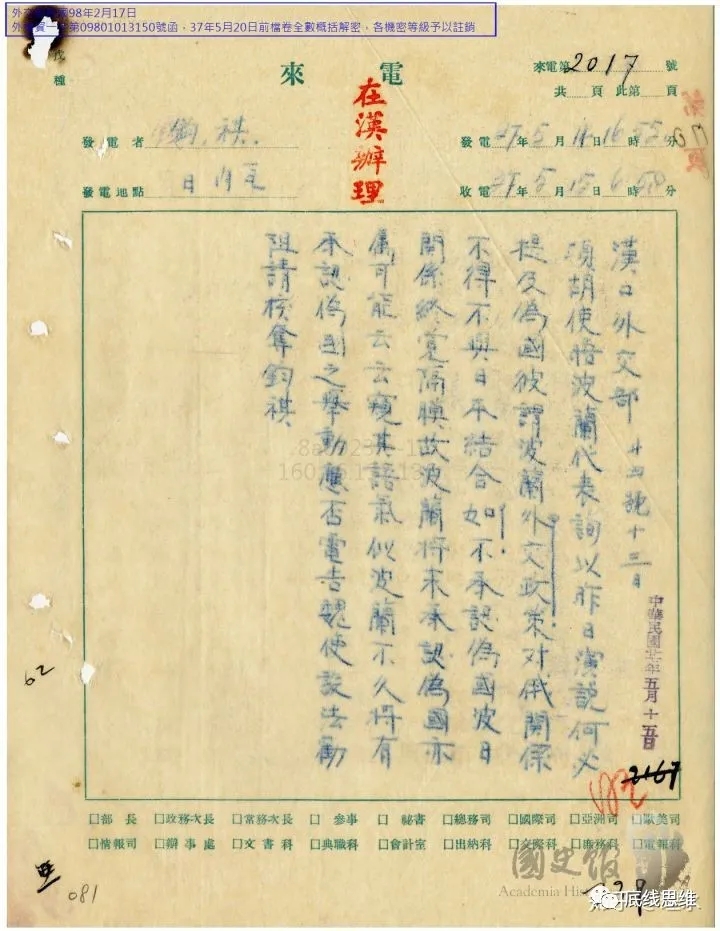 外交部民國98年2月17日
外　　貿一　第09801013150號函，37年5月20日前檔卷全數概括解密，各機密等級予以註銷
種
來電
在漢辦理
來電第2017號
共　頁 此第　頁
發電者 鈞祺
發電地點 日內瓦
發電27年5月14日16時55分
收電27年5月15日6時58分
漢口外交部 廿四號十三日
頃胡使悟波蘭代表詢以昨日演說何必
提及偽國彼謂波蘭外交政策對俄關係
不得不與日本結合如不承認偽國波日
關係終覺隔膜故波蘭將來承認偽國亦
屬可能云云窺其語氣似波蘭不久將有
承認偽國之舉動應否電告魏使設法勸
阻請核奪鈞祺
中華民國廿七年五月十五日
2167
62
□部長 □政務次長 □常務次長 □參事 □祕書 □總務司 □國際司 □亞洲司 □歐美司
□情報司 □辦事處 □文書科 □典職科 □會計室 □出納科 □交際科 □庶務科 □電報科
081
國史館
Academia His
底线思维